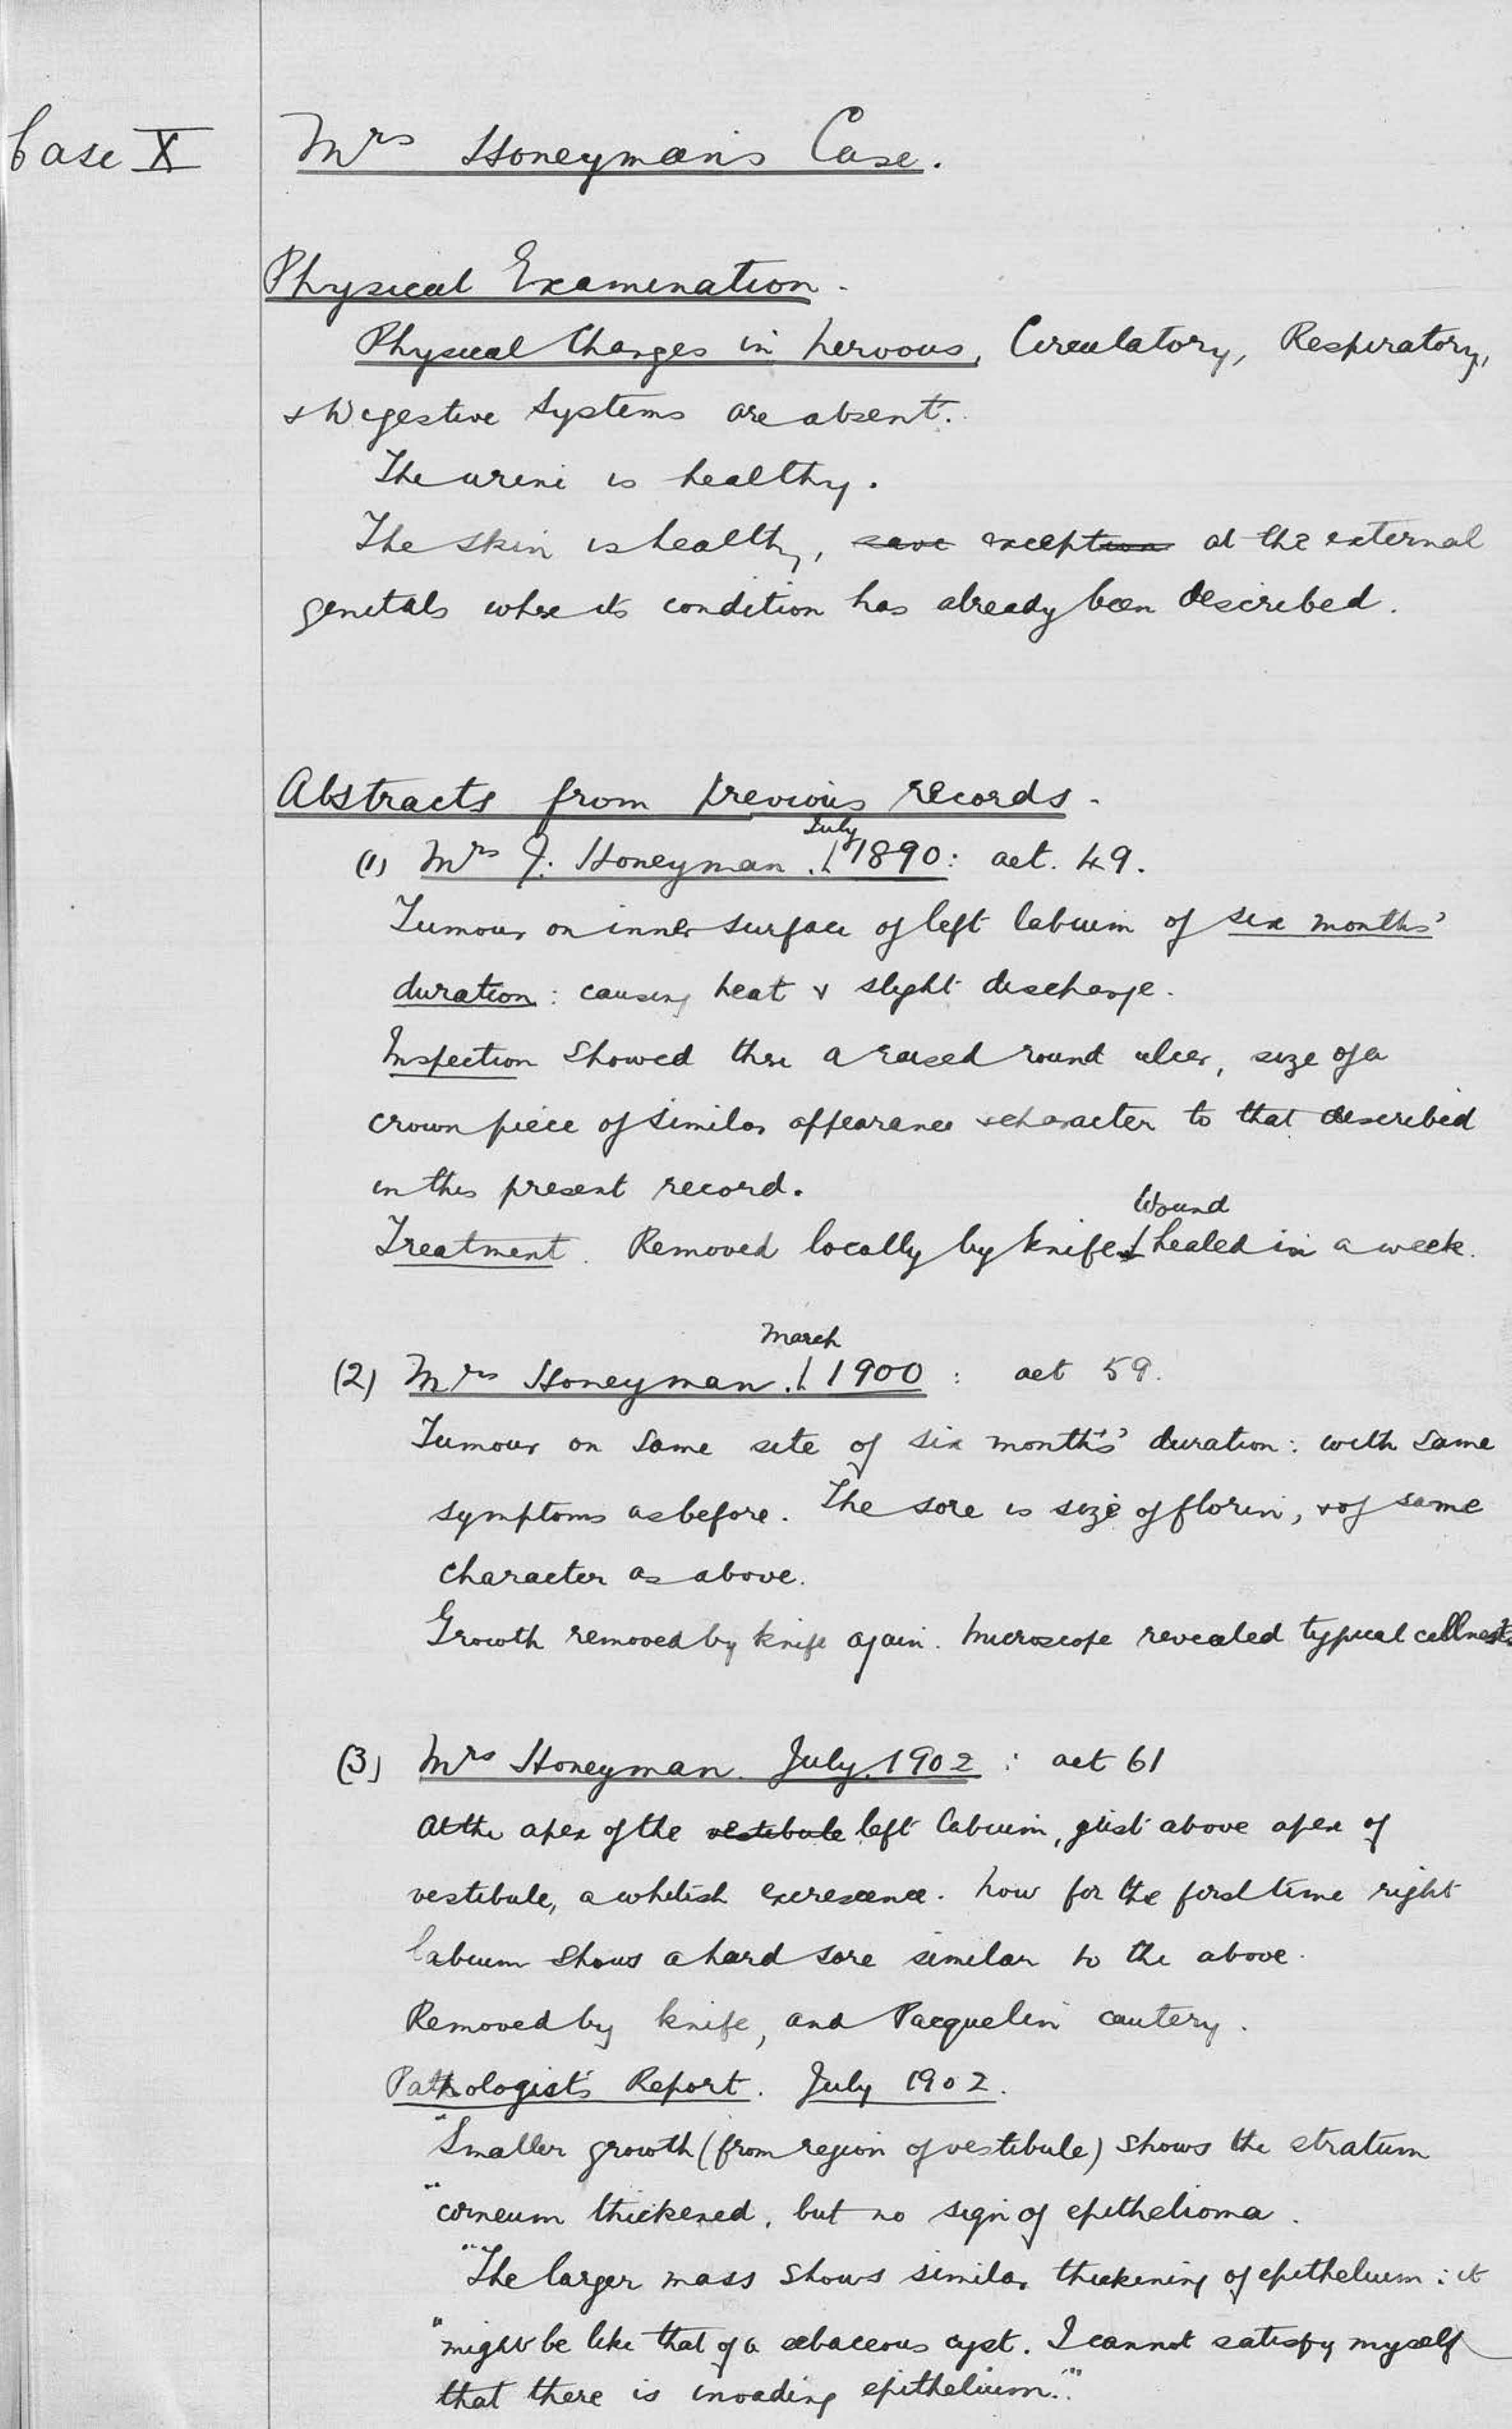 Case X
Mrs Honeyman's Case.
Physical Examination.
Physical Changes in nervous, Circulatory, Respiratory,
& Digestive Systems are absent.
The urine is healthy.
The skin is healthy, save exception at the external
genitals where its condition has already been described.
Abstracts from previous records.
(1) Mrs J. Honeyman. July 1890: aet. 49.
Tumour on inner surface of left labium of six months'
duration: causing heat & slight discharge.
Inspection showed there a raised round ulcer, size of a
crown piece of similar appearance & character to that described
in this present record.
Treatment. Removed locally by knife. Wound healed in a week.
(2) Mrs Honeyman. March 1900: aet 59.
Tumour on same site of six months' duration: with same
symptoms as before. The sore is size of florin, & of same
character as above.
Growth removed by knife again. Microscope revealed typical cellnests.
(3) Mrs Honeyman. July. 1902: aet 61
At the apex of the vestibule left labium, just above apex of
vestibule, a whitish excrescence. Now for the first time right
labium shows a hard sore similar to the above.
Removed by knife, and Pacquelin cautery.
Pathologist's Report. July 1902.
"Smaller growth (from region of vestibule) shows the stratum
"corneum thickened, but no sign of epithelioma.
"The larger mass shows similar thickening of epithelium: it
"might be like that of a sebaceous cyst. I cannot satisfy myself
that there is invading epithelium."